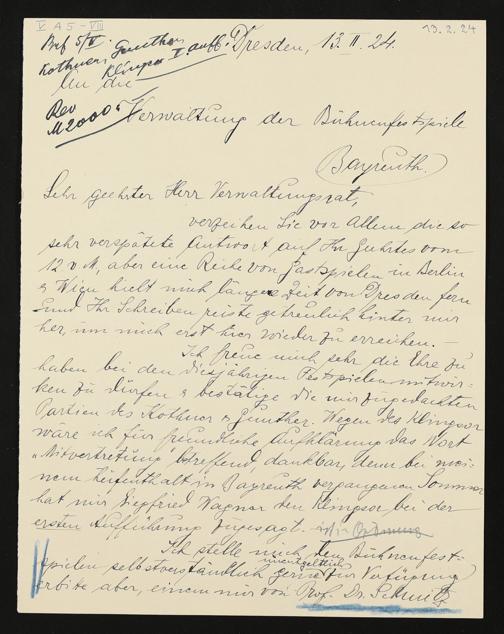 V A 5 - VIII
13.2.24
Brf 5/V
Kothner, Gunther
Klingsor I. Auff.
Dresden, 13. II. 24.
An die
Rev
M 2000
Verwaltung der Bühnenfestspiele
Bayreuth.
Sehr geehrter Herr Verwaltungsrat,
verzeihen Sie vor Allem die so
sehr verspätete Antwort auf Ihr Geehrtes vom
12 v. M, aber eine Reihe von Gastspielen in Berlin
& Wien hielt mich längere Zeit von Dresden fern
und Ihr Schreiben reiste getreulich hinter mir
her, um mich erst hier wieder zu erreichen. —
Ich freue mich sehr die Ehre zu
haben bei den diesjährigen Festspielen mitwir-
ken zu dürfen & bestätige die mir zugedachten
Partien des Kothner & Gunther. Wegen des Klingsor
wäre ich für freundliche Aufklärung das Wort
„Mitvertretung" betreffend, dankbar, denn bei mei-
nem Aufenthalt in Bayreuth vergangenen Sommer
hat mir Siegfried Wagner den Klingsor bei der
ersten Aufführung zugesagt.
Ich stelle mich den Bühnenfest-
spielen selbstverständlich gerne unentgeltlich zur Verfügung
erbitte aber, einem mir von Prof. Dr. Schmitz